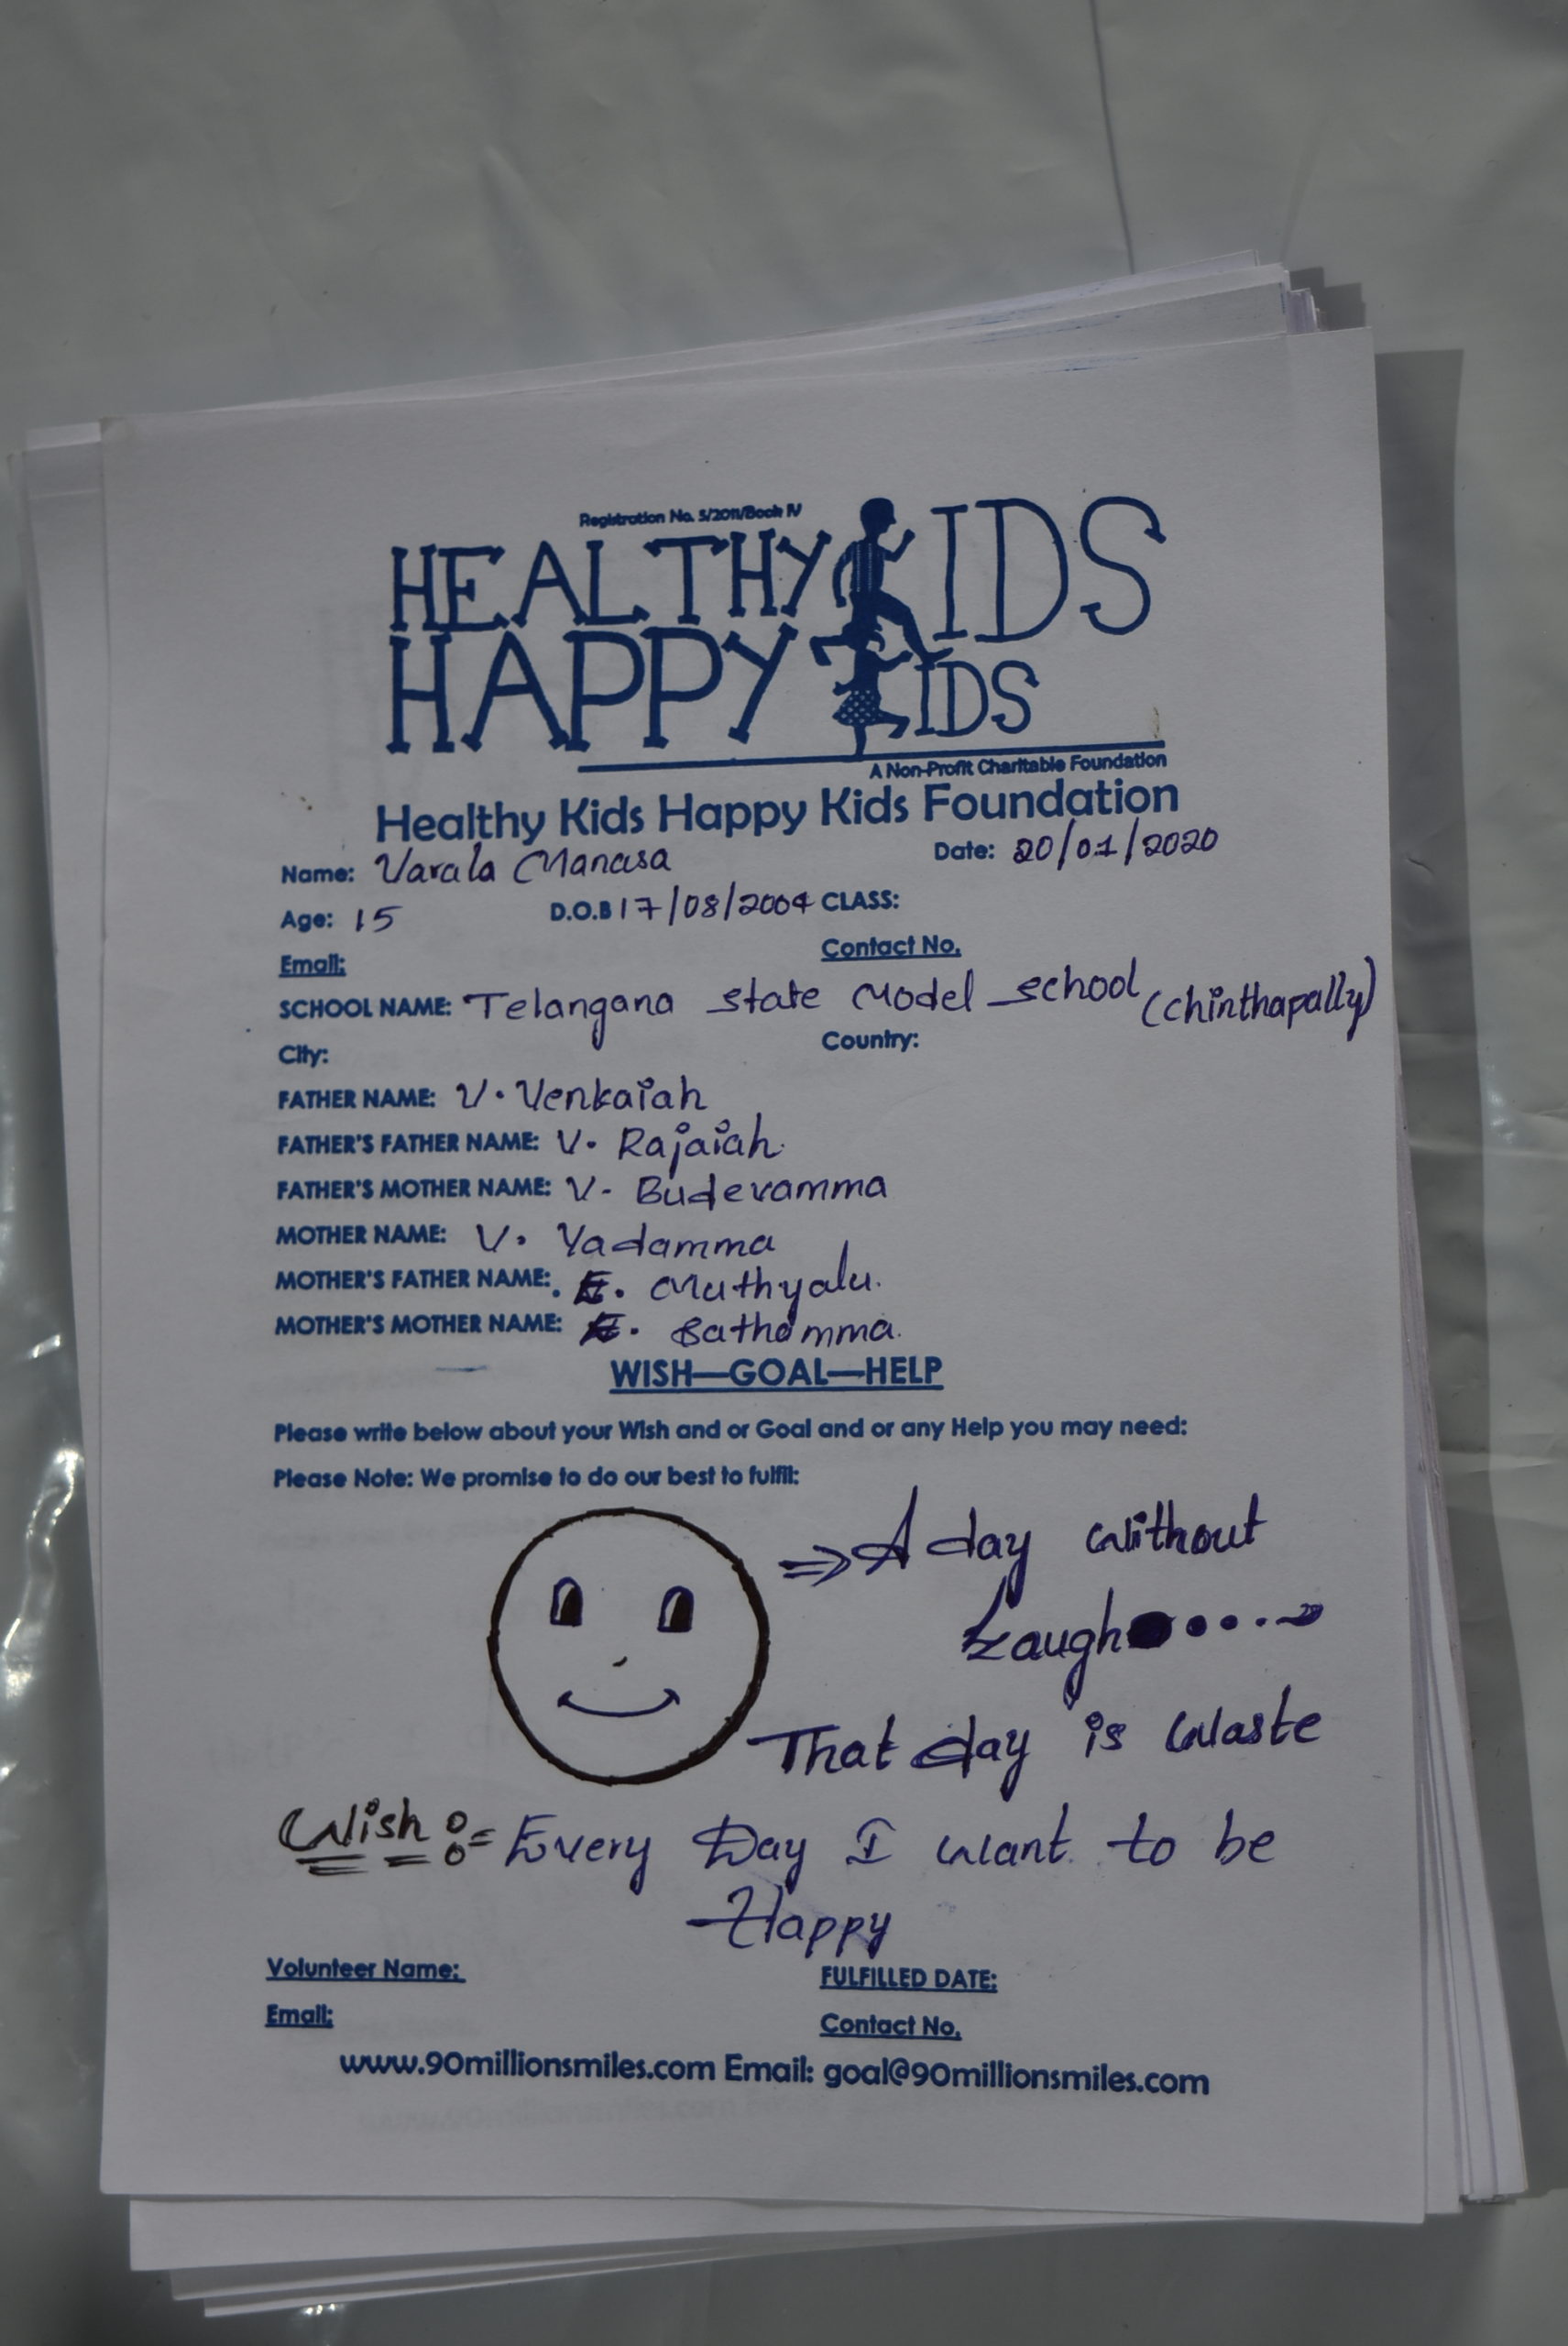 Registration No. 5/2011/Book IV
HEALTHY KIDS
HAPPY KIDS
A Non-Profit Charitable Foundation
Healthy Kids Happy Kids Foundation
Name: Varala Manasa Date: 20/01/2020
Age: 15 D.O.B 17/08/2004 CLASS:
Email: Contact No.
SCHOOL NAME: Telangana state Model school (chinthapally)
City: Country:
FATHER NAME: V. Venkaiah
FATHER'S FATHER NAME: V. Rajaiah.
FATHER'S MOTHER NAME: V- Budevamma
MOTHER NAME: V. Yadamma
MOTHER'S FATHER NAME: E. Muthyalu.
MOTHER'S MOTHER NAME: E. Sathamma.
WISH—GOAL—HELP
Please write below about your Wish and or Goal and or any Help you may need:
Please Note: We promise to do our best to fulfil:
⇒ A day without
Laugh ....→
That day is waste
Wish := Every Day I want to be
Happy
Volunteer Name: FULFILLED DATE:
Email: Contact No.
www.90millionsmiles.com Email: goal@90millionsmiles.com